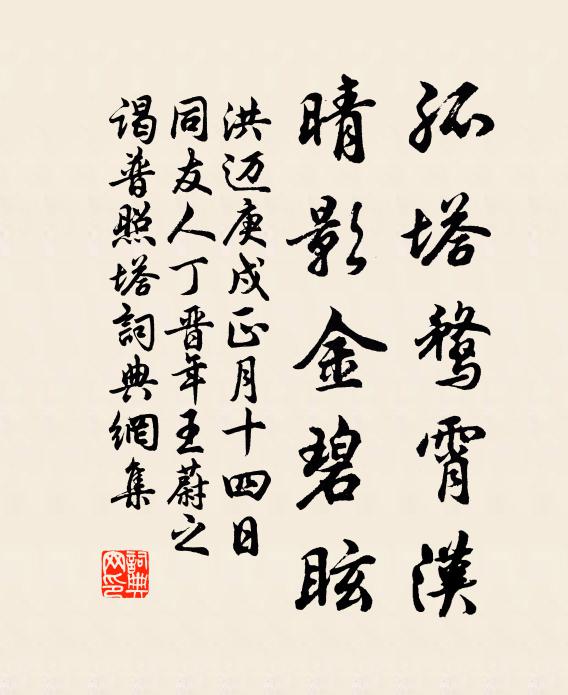 孤塔騖霄漢
晴影金碧眩
洪迈庚戌正月十四日
同友人丁晋年王蔚之
谒普照塔詞典網集
詞典网印